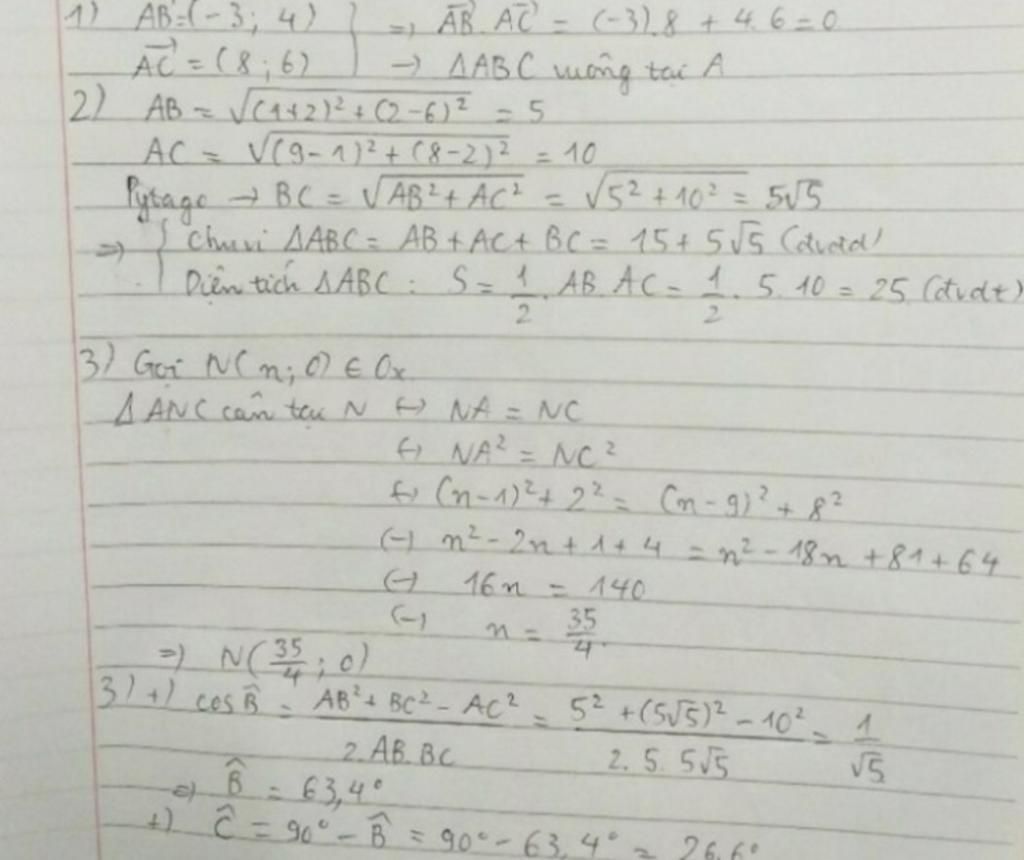 1) AB=(-3; 4) } => \vec{AB}.\vec{AC} = (-3).8 + 4.6 = 0
\vec{AC} = (8; 6) → ΔABC vuông tại A
2) AB = √((1+2)² + (2-6)²) = 5
AC = √((9-1)² + (8-2)²) = 10
Pytago → BC = √(AB² + AC²) = √(5² + 10²) = 5√5
=> { Chu vi ΔABC = AB + AC + BC = 15 + 5√5 (đvđd)
Diện tích ΔABC : S = 1/2 . AB.AC = 1/2 . 5.10 = 25 (đvdt)
3) Gọi N(n; 0) ∈ Ox
ΔANC cân tại N ↔ NA = NC
↔ NA² = NC²
↔ (n-1)² + 2² = (n-9)² + 8²
↔ n² - 2n + 1 + 4 = n² - 18n + 81 + 64
↔ 16n = 140
↔ n = 35/4.
=> N(35/4; 0)
3) +) cos B̂ = (AB² + BC² - AC²)/(2.AB.BC) = (5² + (5√5)² - 10²)/(2.5.5√5) = 1/√5
=> B̂ = 63,4°
+) Ĉ = 90° - B̂ = 90° - 63,4° = 26,6°